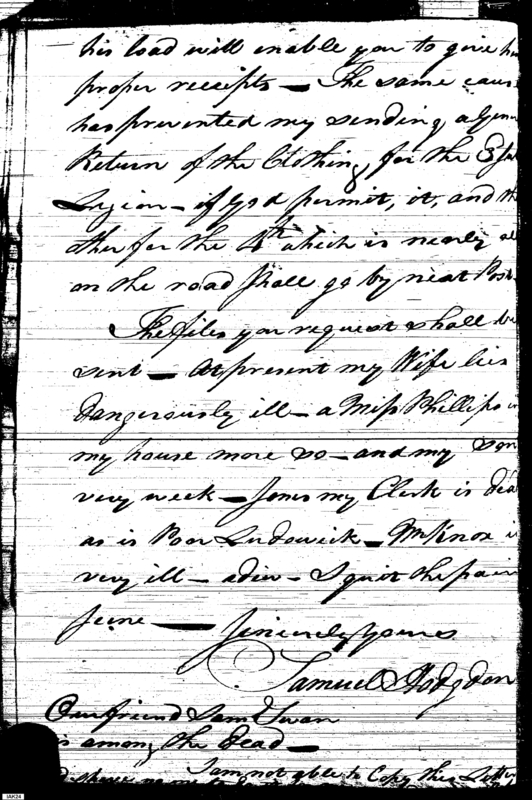 his load will enable you to give h
proper receipts — The same caus
has prevented my sending a Gen
Return of the Clothing for the
Legion — if God permit, it, and th
other for the 4th which is nearly al
on the road shall go by next Post
The files you request shall be
sent — At present my Wife lies
dangerously ill — a Miss Phillips in
my house more so — and my son
very week — Jones my Clerk is dea
as is Poor Ludowick — Mr Knox is
very ill — adieu — I quit the pain
scene — Sincerely Yours
Samuel Hodgdon
Our friend Saml Swan
is among the dead —
I am not able to Copy this Letter
IAK24